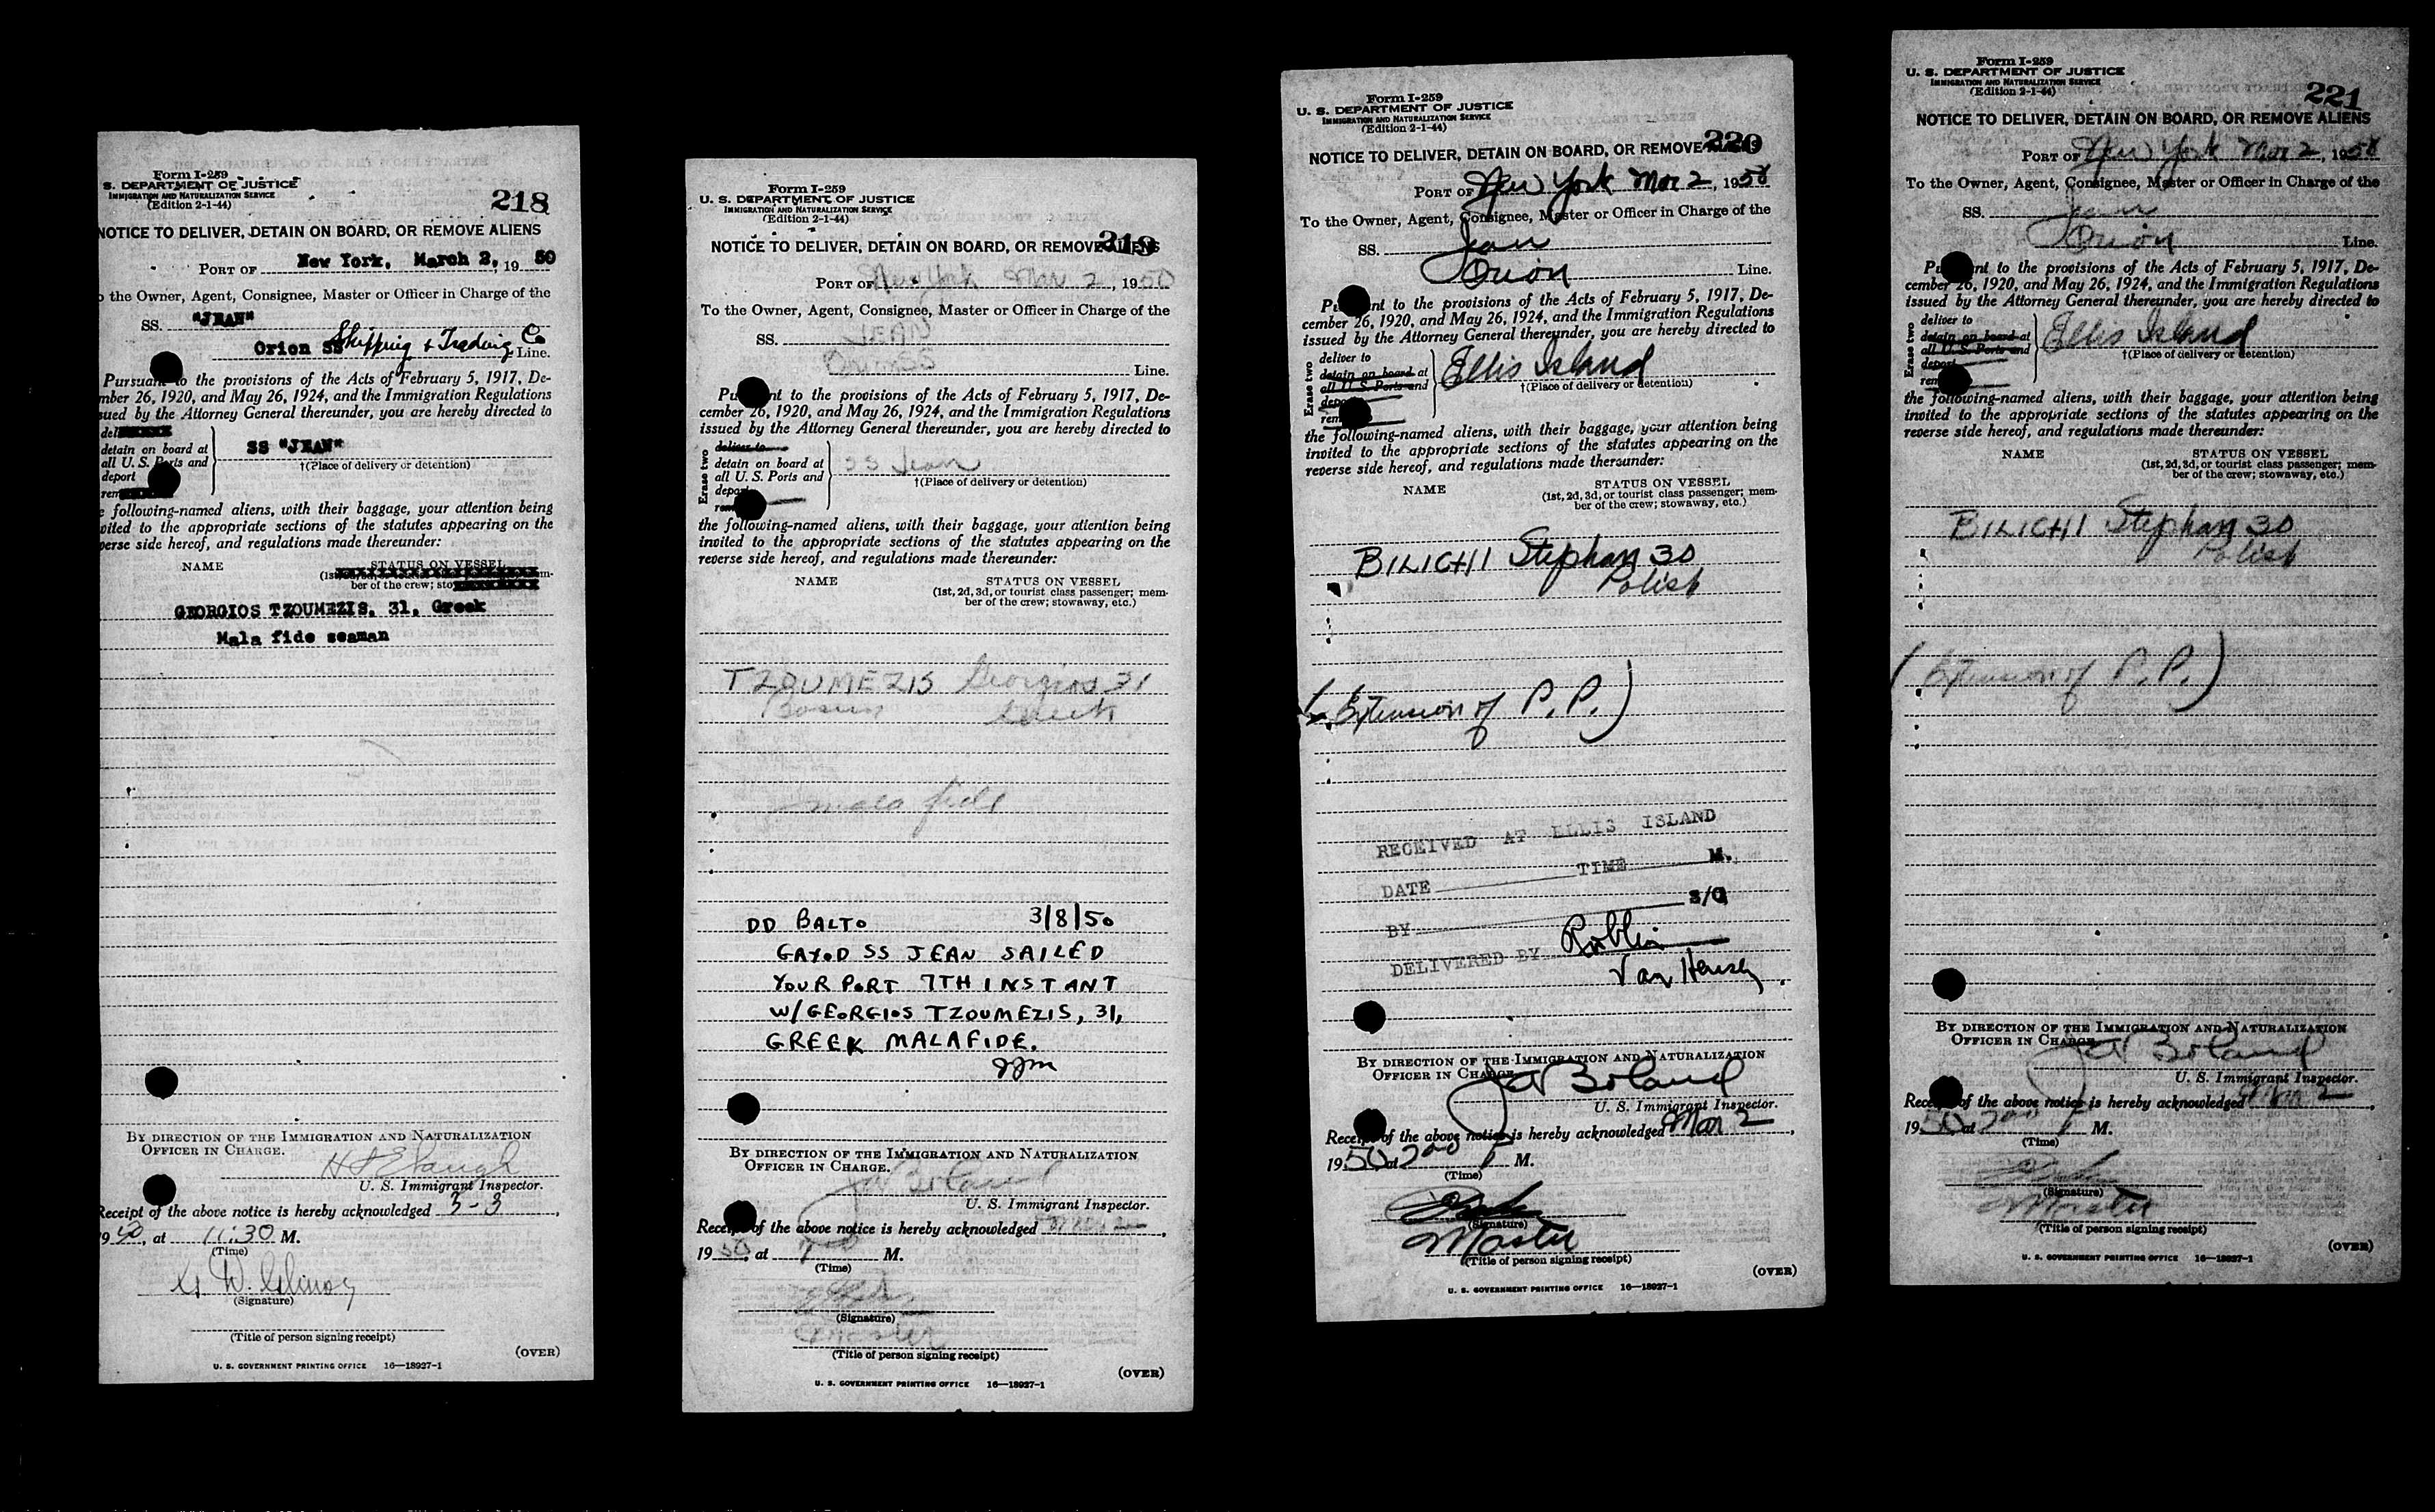 Form I-259
S. DEPARTMENT OF JUSTICE
IMMIGRATION AND NATURALIZATION SERVICE
(Edition 2-1-44)
218
NOTICE TO DELIVER, DETAIN ON BOARD, OR REMOVE ALIENS
PORT OF New York, March 2, 19 50
the Owner, Agent, Consignee, Master or Officer in Charge of the
SS. "JEAN"
Orion SS Shipping & Trading Co Line.
Pursuant to the provisions of the Acts of February 5, 1917, De-
mber 26, 1920, and May 26, 1924, and the Immigration Regulations
sued by the Attorney General thereunder, you are hereby directed to
del
detain on board at
all U. S. Ports and
deport
rem
SS "JEAN"
†(Place of delivery or detention)
following-named aliens, with their baggage, your attention being
vited to the appropriate sections of the statutes appearing on the
verse side hereof, and regulations made thereunder:
NAME STATUS ON VESSEL
(1st mem-
ber of the crew; sto
GEORGIOS TZOUMEZIS, 31, Greek
Mala fide seaman
BY DIRECTION OF THE IMMIGRATION AND NATURALIZATION
OFFICER IN CHARGE.
U. S. Immigrant Inspector.
Receipt of the above notice is hereby acknowledged 3-3,
950, at 11:30 M.
(Time)
(Signature)
(Title of person signing receipt)
(OVER)
U. S. GOVERNMENT PRINTING OFFICE 16—18927-1
Form I-259
U. S. DEPARTMENT OF JUSTICE
IMMIGRATION AND NATURALIZATION SERVICE
(Edition 2-1-44)
219
NOTICE TO DELIVER, DETAIN ON BOARD, OR REMOVE ALIENS
PORT OF New York Mar 2, 1950
To the Owner, Agent, Consignee, Master or Officer in Charge of the
SS. JEAN
Orion SS Line.
Pu nt to the provisions of the Acts of February 5, 1917, De-
cember 26, 1920, and May 26, 1924, and the Immigration Regulations
issued by the Attorney General thereunder, you are hereby directed to
Erase two
deliver to
detain on board at
all U. S. Ports and
deport
rem
SS Jean
†(Place of delivery or detention)
the following-named aliens, with their baggage, your attention being
invited to the appropriate sections of the statutes appearing on the
reverse side hereof, and regulations made thereunder:
NAME STATUS ON VESSEL
(1st, 2d, 3d, or tourist class passenger; mem-
ber of the crew; stowaway, etc.)
TZOUMEZIS Georgios 31
Bosun Greek
mala fide
DD BALTO 3/8/50
GAYOD SS JEAN SAILED
YOUR PORT 7TH INSTANT
W/GEORGIOS TZOUMEZIS, 31,
GREEK MALAFIDE.
JJM
BY DIRECTION OF THE IMMIGRATION AND NATURALIZATION
OFFICER IN CHARGE.
Borland
U. S. Immigrant Inspector.
Receipt of the above notice is hereby acknowledged Mar 2,
1950, at 700 M.
(Time)
(Signature)
Master
(Title of person signing receipt)
(OVER)
U. S. GOVERNMENT PRINTING OFFICE 16—18927-1
Form I-259
U. S. DEPARTMENT OF JUSTICE
IMMIGRATION AND NATURALIZATION SERVICE
(Edition 2-1-44)
220
NOTICE TO DELIVER, DETAIN ON BOARD, OR REMOVE ALIENS
PORT OF New York Mar 2, 1950
To the Owner, Agent, Consignee, Master or Officer in Charge of the
SS. Jean
Orion Line.
Pu nt to the provisions of the Acts of February 5, 1917, De-
cember 26, 1920, and May 26, 1924, and the Immigration Regulations
issued by the Attorney General thereunder, you are hereby directed to
Erase two
deliver to
detain on board at
all U. S. Ports and
depo
rem
Ellis Island
†(Place of delivery or detention)
the following-named aliens, with their baggage, your attention being
invited to the appropriate sections of the statutes appearing on the
reverse side hereof, and regulations made thereunder:
NAME STATUS ON VESSEL
(1st, 2d, 3d, or tourist class passenger; mem-
ber of the crew; stowaway, etc.)
BILICHI Stephan 30
Polish
(Extension of P.P.)
RECEIVED AT ELLIS ISLAND
DATE TIME M.
BY S/O
DELIVERED BY
BY DIRECTION OF THE IMMIGRATION AND NATURALIZATION
OFFICER IN CHARGE.
Borland
U. S. Immigrant Inspector.
Receipt of the above notice is hereby acknowledged Mar 2,
1950, at 700 P M.
(Time)
(Signature)
Master
(Title of person signing receipt)
(OVER)
U. S. GOVERNMENT PRINTING OFFICE 16—18927-1
Form I-259
U. S. DEPARTMENT OF JUSTICE
IMMIGRATION AND NATURALIZATION SERVICE
(Edition 2-1-44)
221
NOTICE TO DELIVER, DETAIN ON BOARD, OR REMOVE ALIENS
PORT OF New York Mar 2, 1950
To the Owner, Agent, Consignee, Master or Officer in Charge of the
SS. Jean
Orion Line.
Pu nt to the provisions of the Acts of February 5, 1917, De-
cember 26, 1920, and May 26, 1924, and the Immigration Regulations
issued by the Attorney General thereunder, you are hereby directed to
Erase two
deliver to
detain on board at
all U. S. Ports and
depo
rem
Ellis Island
†(Place of delivery or detention)
the following-named aliens, with their baggage, your attention being
invited to the appropriate sections of the statutes appearing on the
reverse side hereof, and regulations made thereunder:
NAME STATUS ON VESSEL
(1st, 2d, 3d, or tourist class passenger; mem-
ber of the crew; stowaway, etc.)
BILICHI Stephan 30
Polish
(Extension of P.P.)
BY DIRECTION OF THE IMMIGRATION AND NATURALIZATION
OFFICER IN CHARGE.
Borland
U. S. Immigrant Inspector.
Receipt of the above notice is hereby acknowledged Mar 2,
1950, at 700 P M.
(Time)
(Signature)
Master
(Title of person signing receipt)
(OVER)
U. S. GOVERNMENT PRINTING OFFICE 16—18927-1